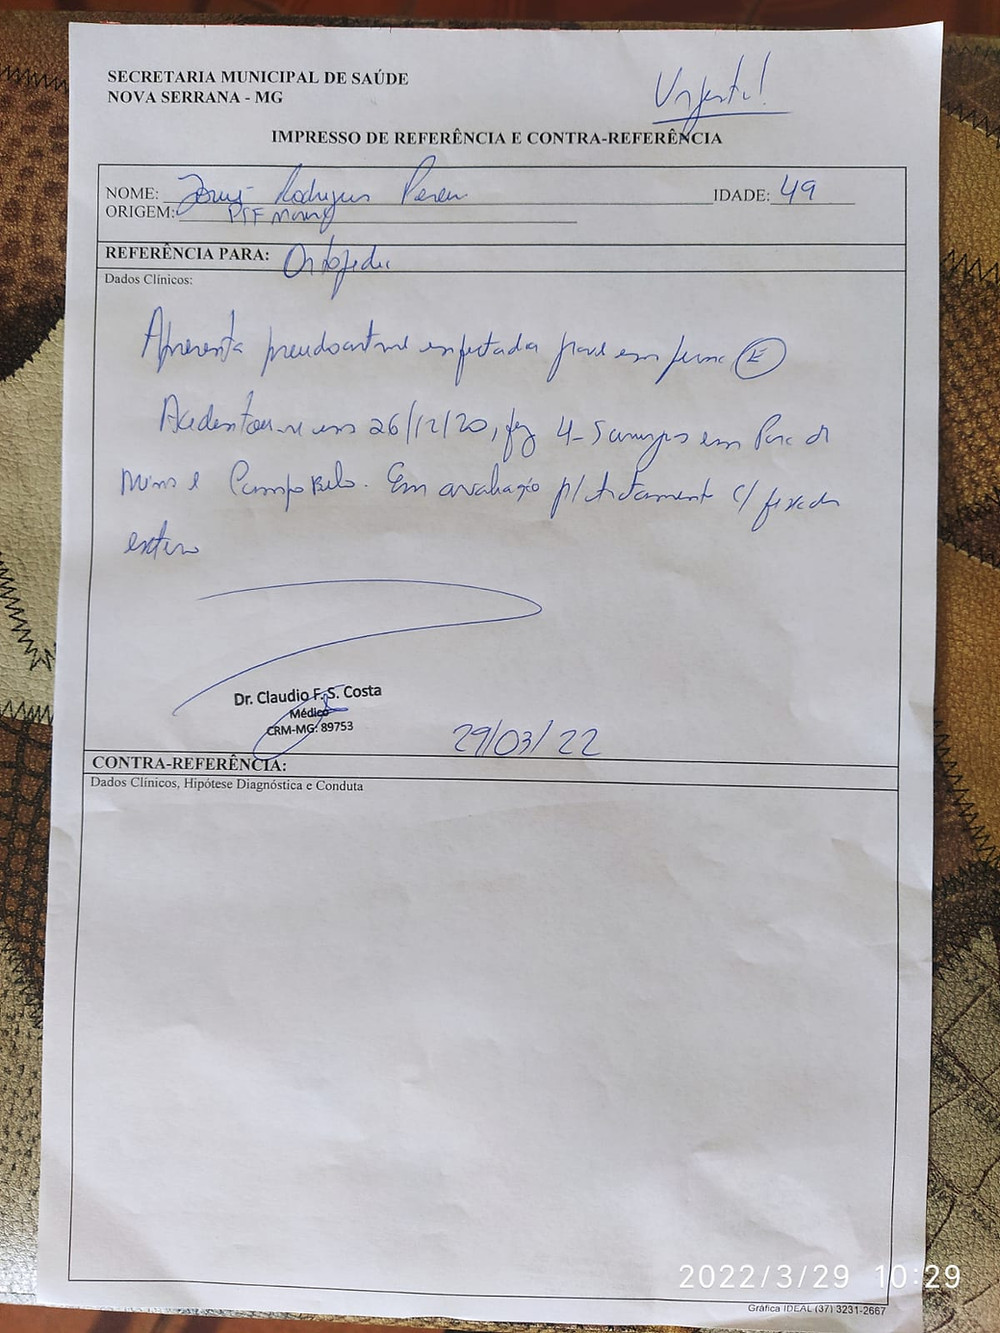 SECRETARIA MUNICIPAL DE SAÚDE
NOVA SERRANA - MG
Urgente!
IMPRESSO DE REFERÊNCIA E CONTRA-REFERÊNCIA
NOME: Rodrigues Pereira IDADE: 49
ORIGEM: PSF
REFERÊNCIA PARA: Ortopedia
Dados Clínicos:
Apresenta pseudoartrose infectada grave em perna E
Acidentou-se em 26/12/20, fez 4-5 cirurgias em Pará de
Minas e Campo Belo. Em avaliação p/ tratamento c/ fixador
externo
Dr. Claudio F. S. Costa
Médico
CRM-MG: 89753
29/03/22
CONTRA-REFERÊNCIA:
Dados Clínicos, Hipótese Diagnóstica e Conduta
2022/3/29 10:29
Gráfica IDEAL (37) 3231-2667